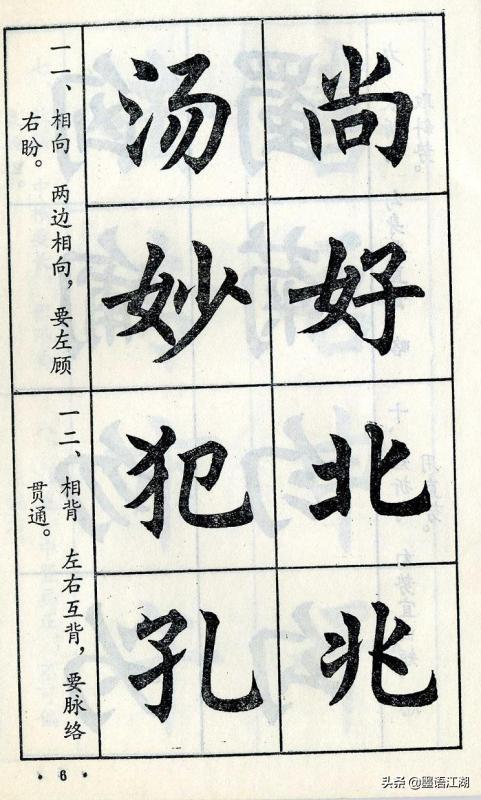 尚好
汤妙
一一、相向 两边相向，要左顾
右盼。
北兆
犯孔
一二、相背 左右互背，要脉络
贯通。
· 6 ·
头条 @墨语江湖